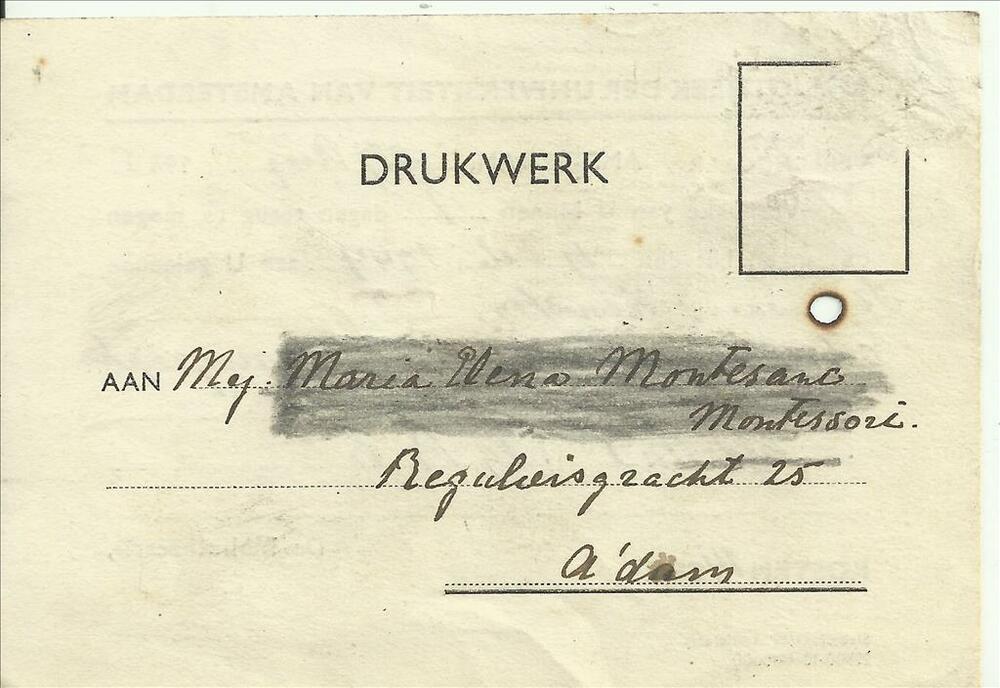 DRUKWERK
AAN Mej. Maria Elena Montesano
Montessori.
Reguliersgracht 25
A'dam